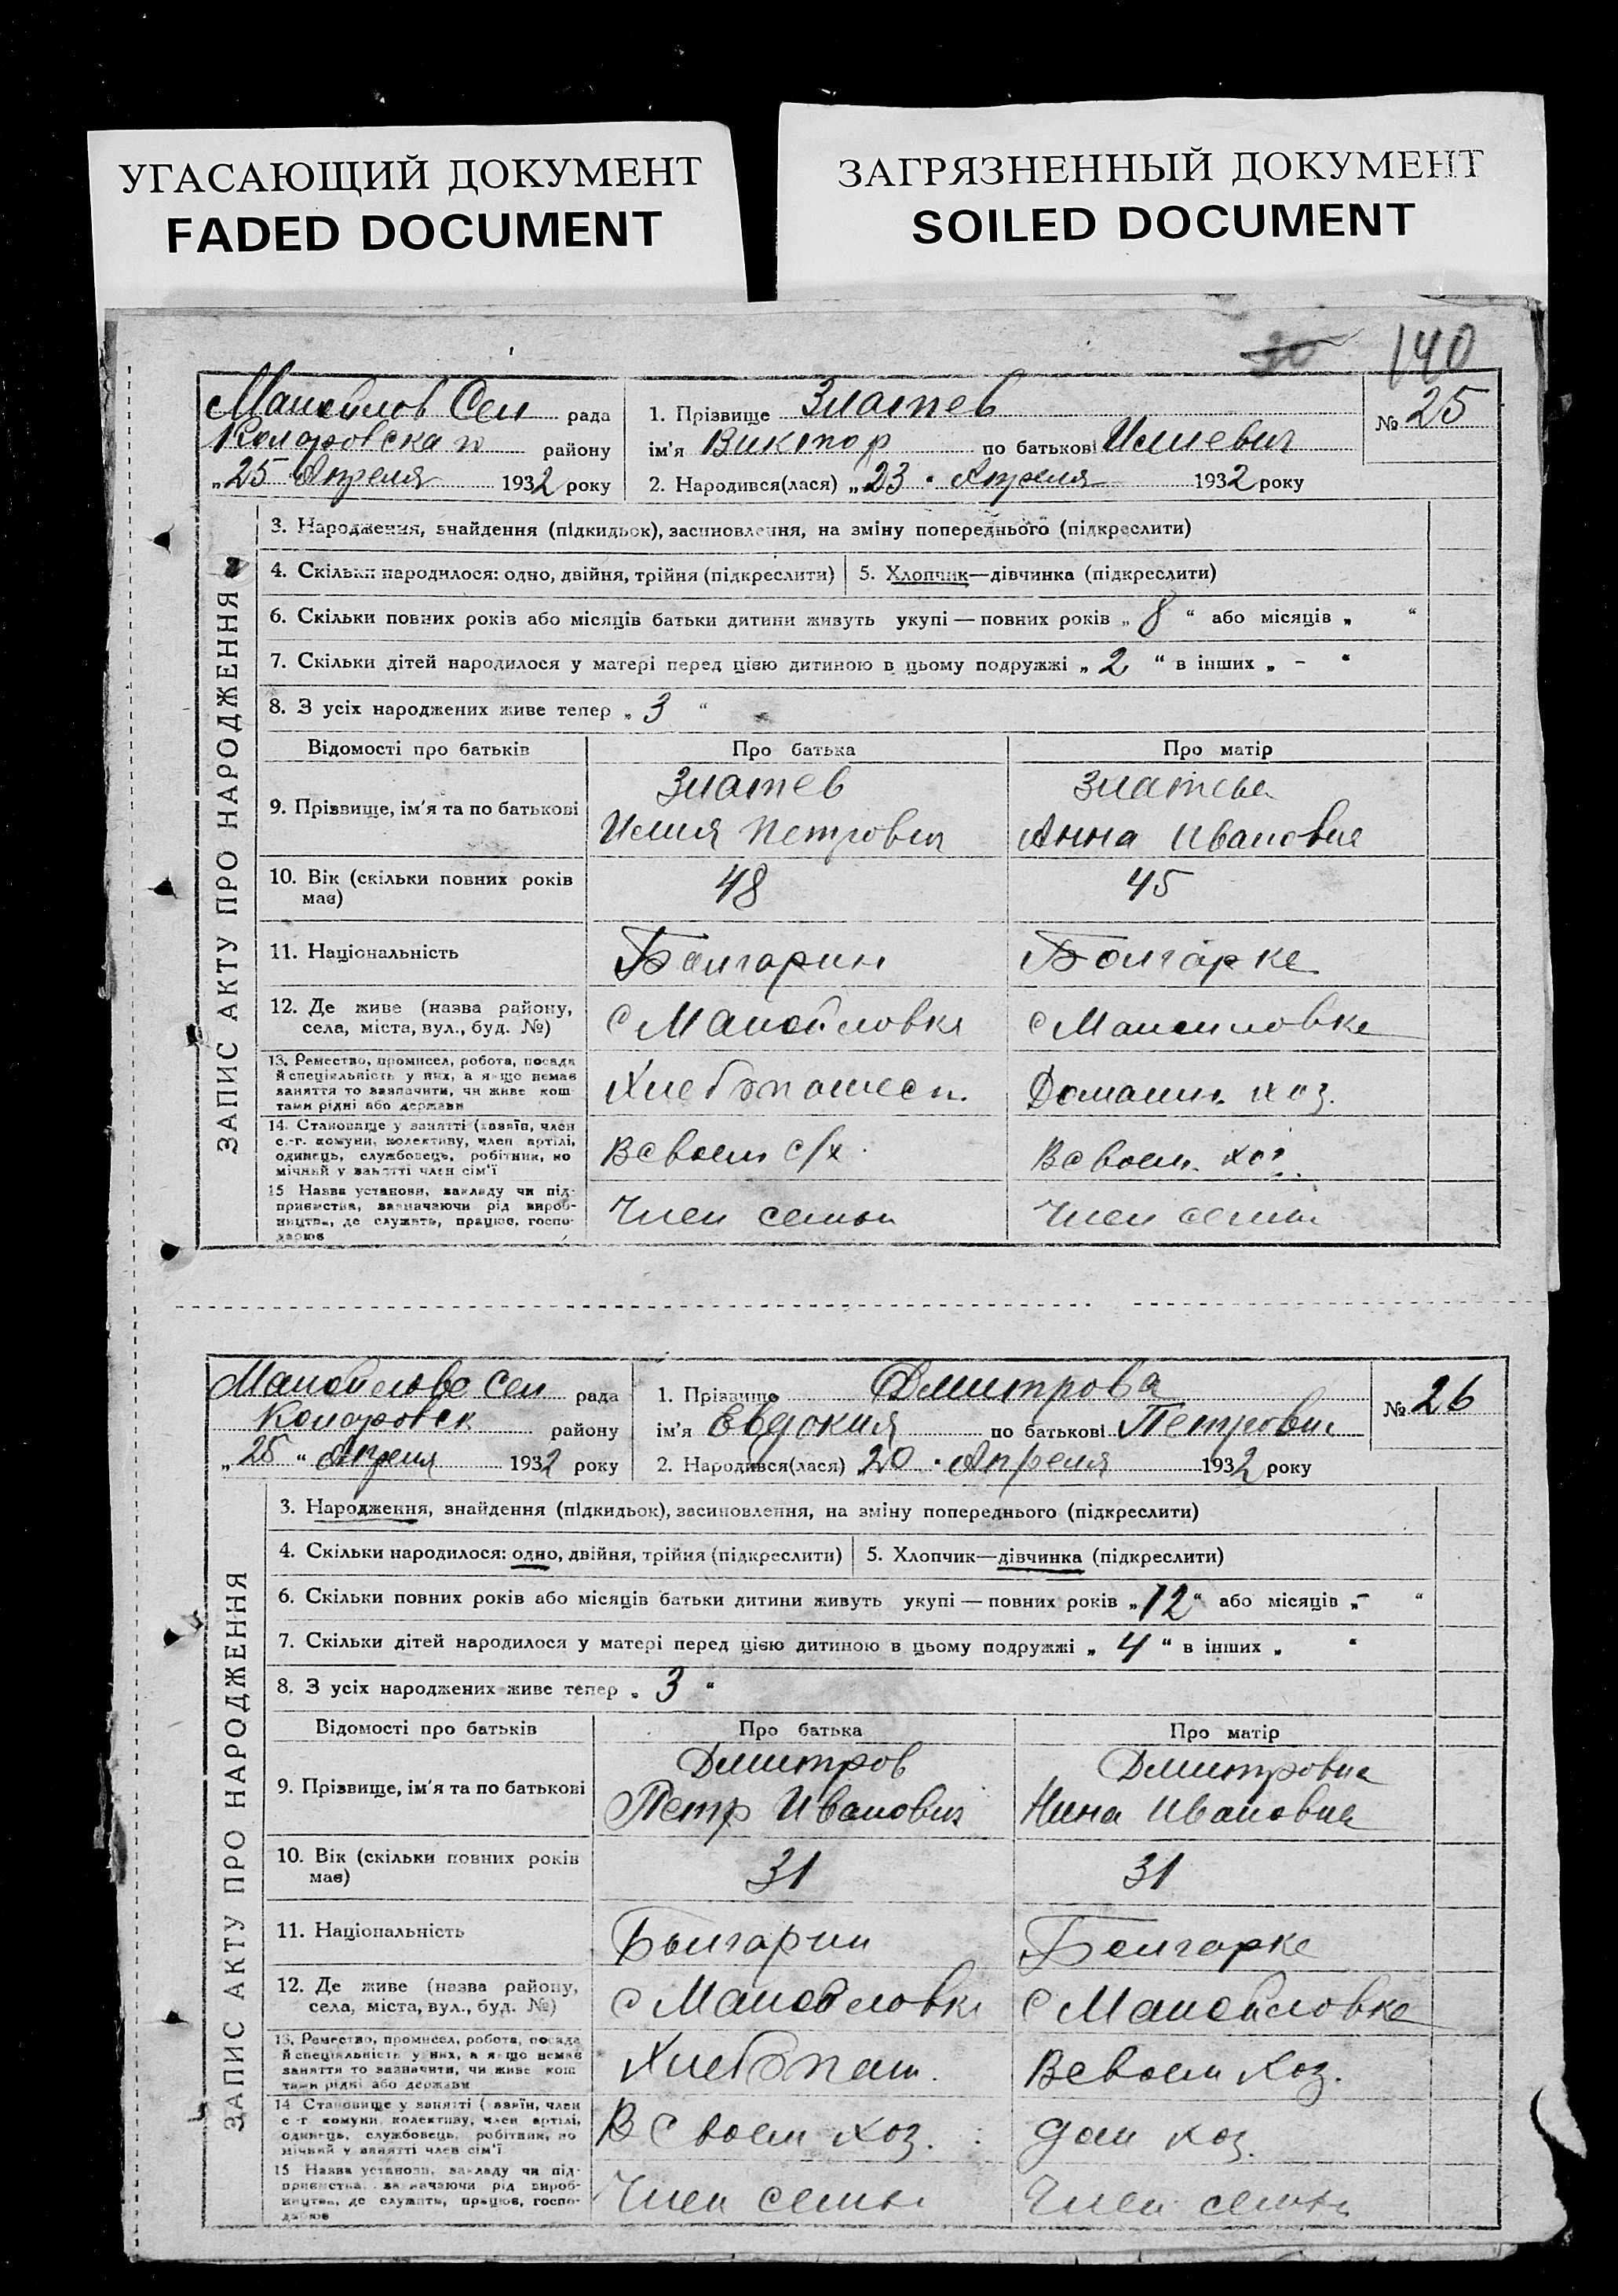 УГАСАЮЩИЙ ДОКУМЕНТ
FADED DOCUMENT
ЗАГРЯЗНЕННЫЙ ДОКУМЕНТ
SOILED DOCUMENT
30 140
Манойлов Сел рада
Коларовска району
„25 Апреля 1932 року
1. Прізвище Златев
ім'я Виктор по батькові Илиевич
2. Народився(лася) „23 " Апреля 1932 року
№ 25
ЗАПИС АКТУ ПРО НАРОДЖЕННЯ
3. Народження, знайдення (підкидьок), засиновлення, на зміну попереднього (підкреслити)
4. Скільки народилося: одно, двійня, трійня (підкреслити) 5. Хлопчик—дівчинка (підкреслити)
6. Скільки повних років або місяців батьки дитини живуть укупі — повних років „ 8 “ або місяців „ “
7. Скільки дітей народилося у матері перед цією дитиною в цьому подружжі „ 2 “ в інших „ - “
8. З усіх народжених живе тепер „ 3 “
Відомості про батьків Про батька Про матір
9. Прізвище, ім'я та по батькові
Златев
Илия Петрович
Златева
Анна Ивановна
10. Вік (скільки повних років має) 48 45
11. Національність Болгарин Болгарке
12. Де живе (назва району, села, міста, вул., буд. №) с Манойловка с Манойловке
13. Ремество, промисел, робота, посада
й спеціяльність у них, а якщо немає
заняття то зазначити, чи живе кош
тами рідні або держави
Хлебопашес. Домашн. хоз.
14. Становище у занятті (хазяїн, член
с.-г. комуни, колективу, член артілі,
одинець, службовець, робітник, по
мічний у занятті член сім'ї
В своем с/х. В своем. хоз.
15 Назва установи, закладу чи під-
приємства, зазначаючи рід вироб-
ництва, де служить, працює, госпо-
дарює
Член семьи Член семьи
Манойлово Сел рада
Коларовск району
„ 25 “ Апреля 1932 року
1. Прізвище Дмитрова
ім'я Евдокия по батькові Петровна
2. Народився(лася) „20 " Апреля 1932 року
№ 26
ЗАПИС АКТУ ПРО НАРОДЖЕННЯ
3. Народження, знайдення (підкидьок), засиновлення, на зміну попереднього (підкреслити)
4. Скільки народилося: одно, двійня, трійня (підкреслити) 5. Хлопчик—дівчинка (підкреслити)
6. Скільки повних років або місяців батьки дитини живуть укупі — повних років „12“ або місяців „- “
7. Скільки дітей народилося у матері перед цією дитиною в цьому подружжі „ 4 “ в інших „ “
8. З усіх народжених живе тепер „ 3 “
Відомості про батьків Про батька Про матір
9. Прізвище, ім'я та по батькові
Дмитров
Петр Иванович
Дмитровна
Нина Ивановна
10. Вік (скільки повних років має) 31 31
11. Національність Болгарин Болгарке
12. Де живе (назва району, села, міста, вул., буд. №) с Манойловка с Манойловке
13. Ремество, промисел, робота, посада
й спеціяльність у них, а якщо немає
заняття то зазначити, чи живе кош
тами рідні або держави
Хлебопаш. В своем хоз.
14 Становище у занятті (хазяїн, член
с-г комуни, колективу, член артілі,
одинець, службовець, робітник, по
мічний у занятті член сім'ї
В своем хоз. дом хоз.
15 Назва установи, закладу чи під-
приємства, зазначаючи рід вироб-
ництва, де служить, працює, госпо-
дарює
Член семьи Член семьи